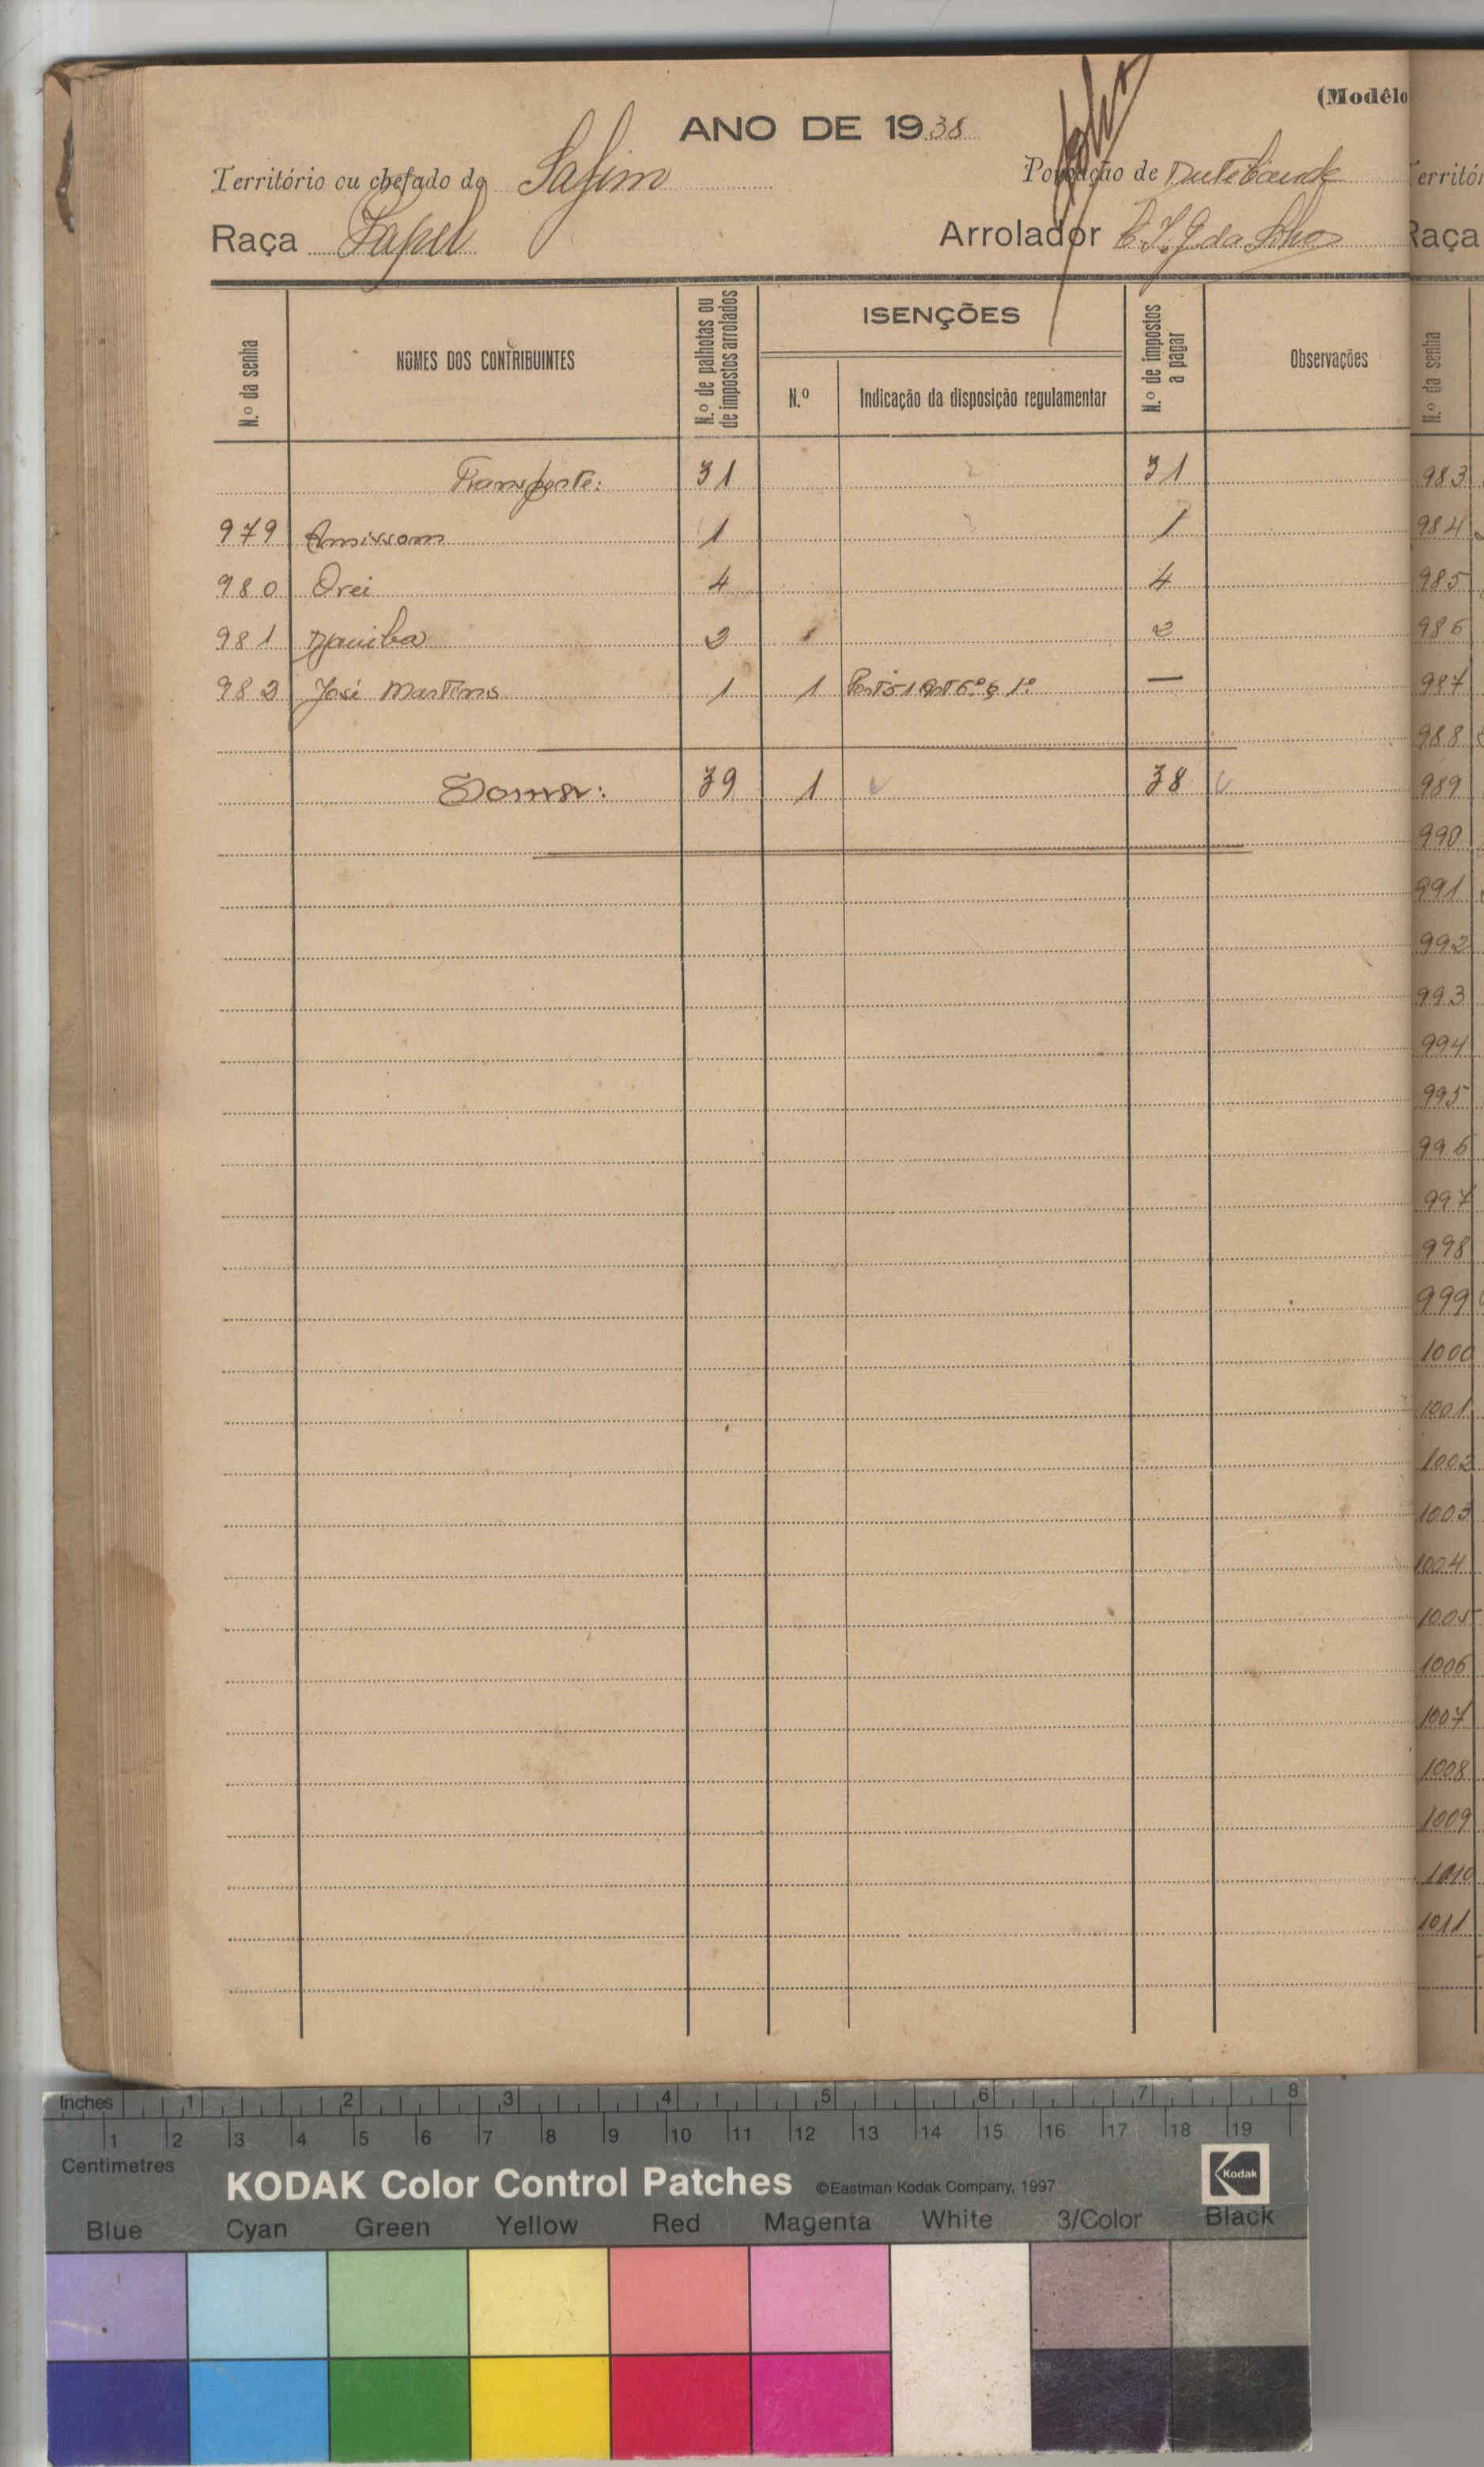 (Modêlo
ANO DE 1938
Território ou chefado de Safim
Povoação de
Raça Papel
Arrolador
N.º da senha
NOMES DOS CONTRIBUINTES
N.º de palhotas ou de impostos arrolados
ISENÇÕES
N.º
Indicação da disposição regulamentar
N.º de impostos a pagar
Observações
Transporte: 31 31
979 1 1
980 Orei 4 4
981 2 2
982 José Martins 1 1 —
Soma: 39 1 38
Territó
Raça
N.º da senha
983
984
985
986
987
988
989
990
991
992
993
994
995
996
997
998
999
1000
1001
1002
1003
1004
1005
1006
1007
1008
1009
1010
1011
Inches 1 2 3 4 5 6 7 8
1 2 3 4 5 6 7 8 9 10 11 12 13 14 15 16 17 18 19
Centimetres
KODAK Color Control Patches ©Eastman Kodak Company, 1997 Kodak
Blue Cyan Green Yellow Red Magenta White 3/Color Black